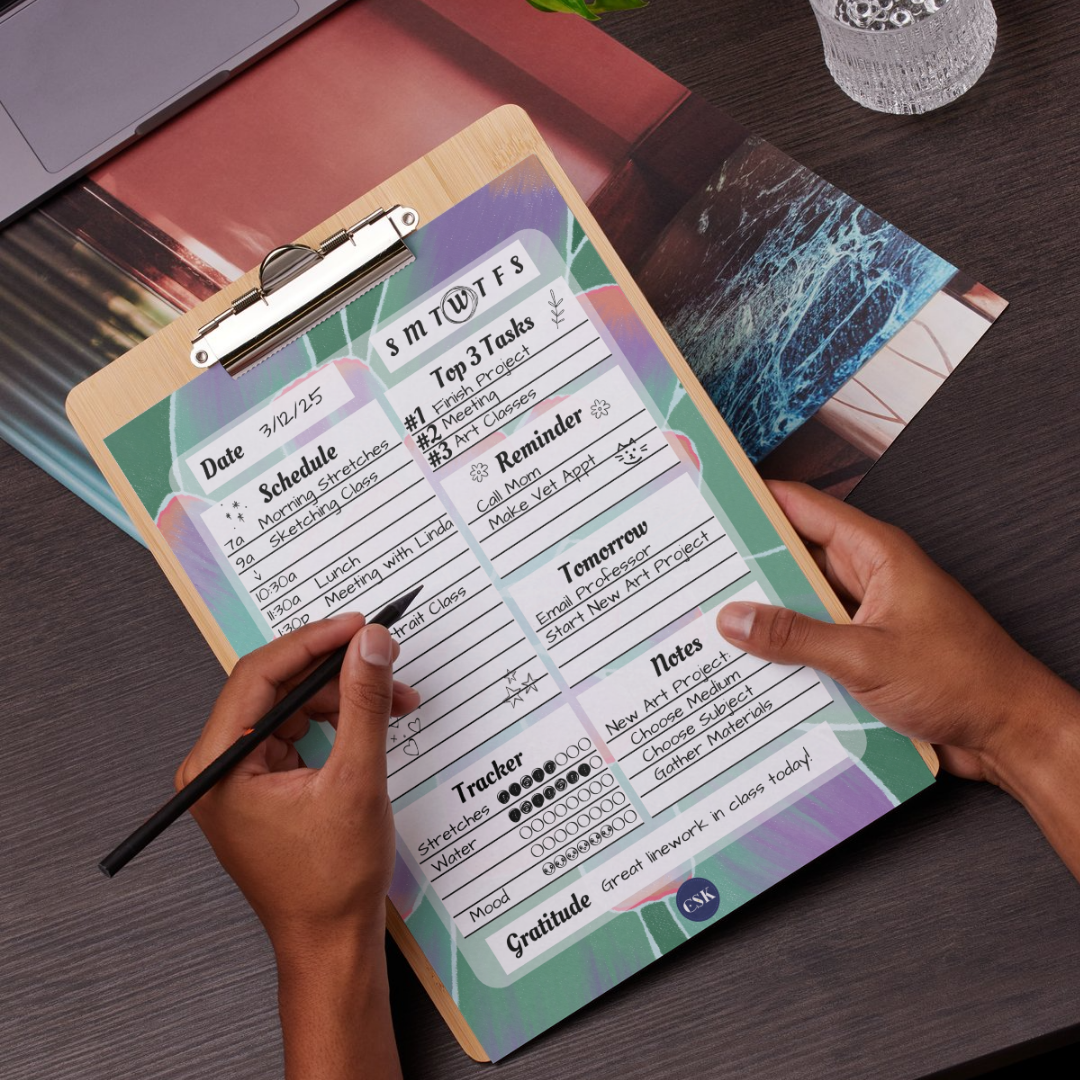 S M T W T F S
Date 3/12/25
Top 3 Tasks
#1 Finish Project
#2 Meeting
#3 Art Classes
Schedule
7a Morning Stretches
9a Sketching Class
10:30a
11:30a Lunch
1:30p Meeting with Linda
trait Class
Reminder
Call Mom
Make Vet Appt
Tomorrow
Email Professor
Start New Art Project
Notes
New Art Project:
Choose Medium
Choose Subject
Gather Materials
Tracker
Stretches
Water
Mood
Gratitude Great linework in class today!
CSK